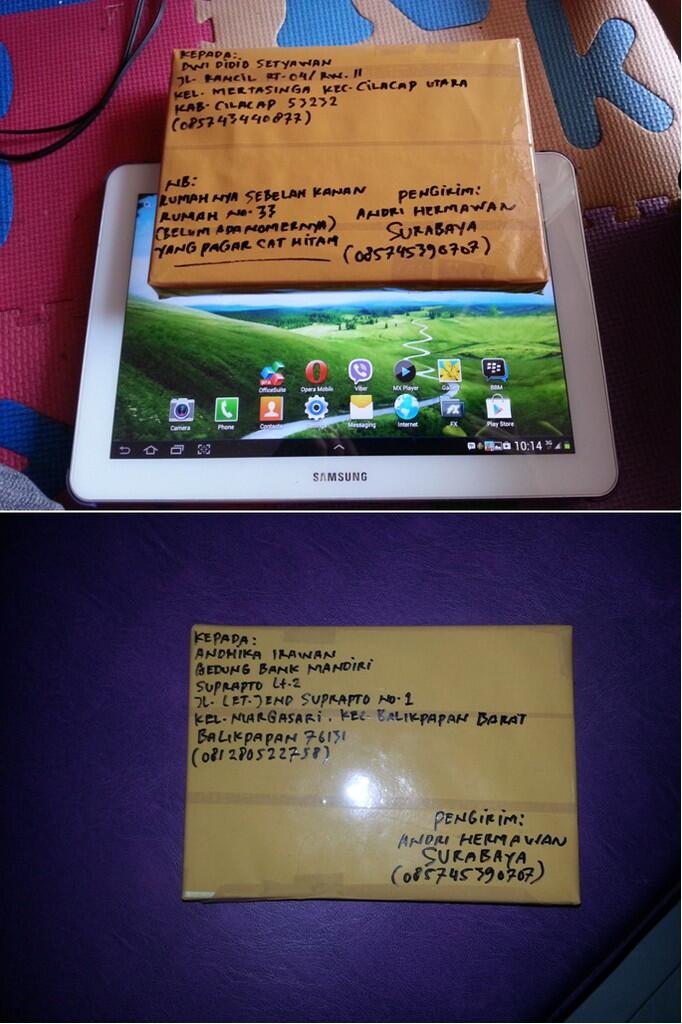 KEPADA:
DWI DIDID SETYAWAN
JL. KANCIL RT-04/RW. 11
KEL. MERTASINGA KEC. CILACAP UTARA
KAB. CILACAP 53232
(085743440877)
NB:
RUMAHNYA SEBELAH KANAN
RUMAH NO. 33
(BELUM ADA NOMERNYA)
YANG PAGAR CAT HITAM
PENGIRIM:
ANDRI HERMAWAN
SURABAYA
(085745390707)
OfficeSuite
Opera Mobile
Viber
MX Player
Gallery
BBM
Camera
Phone
Contacts
Settings
Messaging
Internet
FX
Play Store
10:14
3G
SAMSUNG
KEPADA:
ANDHIKA IRAWAN
GEDUNG BANK MANDIRI
SUPRAPTO Lt.2
JL. LET.JEND SUPRAPTO NO.1
KEL. MARGASARI. KEC. BALIKPAPAN BARAT
BALIKPAPAN 76131
(081280522758)
PENGIRIM:
ANDRI HERMAWAN
SURABAYA
(085745390707)